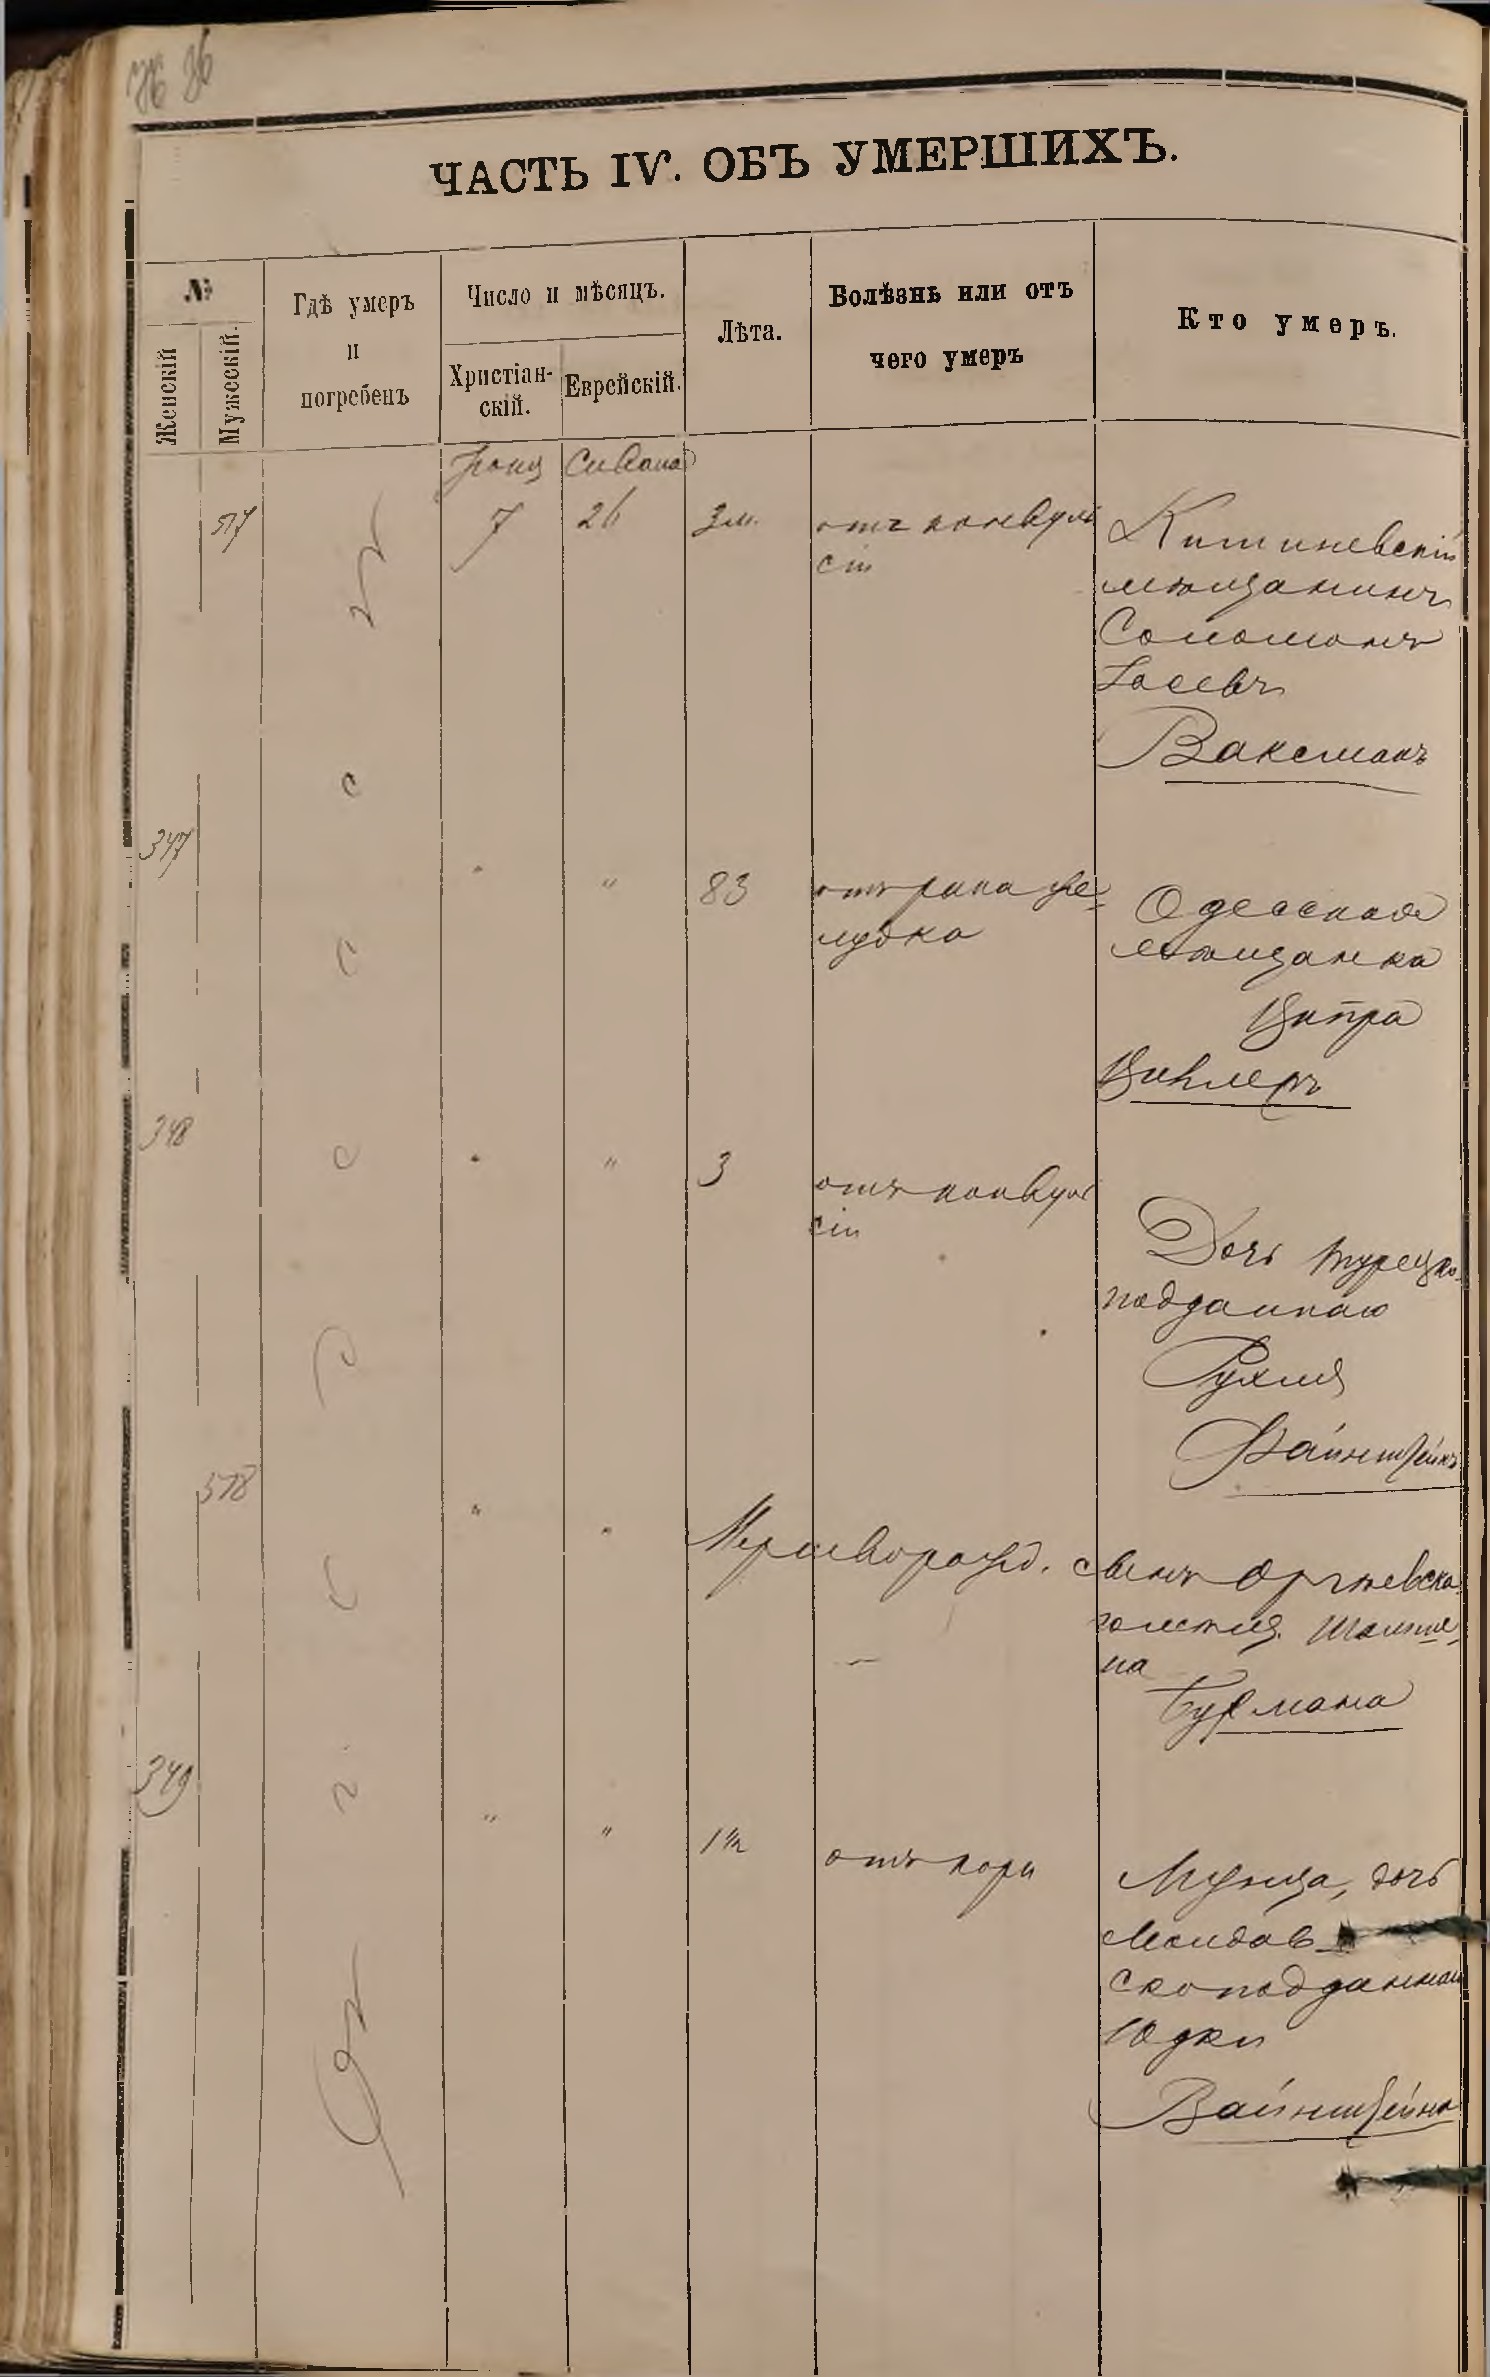 36 36
ЧАСТЬ IV. ОБЪ УМЕРШИХЪ.
№
Женскій
Мужескій.
Гдѣ умеръ
и
погребенъ
Число и мѣсяцъ.
Христіан-
скій.
Еврейскій.
Лѣта.
Болѣзнь или отъ
чего умеръ
Кто умеръ.
Іюня Сивана
517 7 26 3 м. отъ конвуль
сіи
Кишиневскій
мѣщанинъ
Соломонъ
Іосевъ
Ваксманъ
347 " " 83 отъ рака же-
лудка
Одесская
мѣщанка
Ципра
348 " " 3 отъ конвул
сіи
Дочь турецко-
подданнаго
Рухля
Вайнштейнъ
518 " " Мертворожд.
сынъ Оргѣевска
го мѣщ.
на
349 " " 1½ отъ кори
дочь
Молдав-
скоподданнаго
Юдки
Вайнштейна
Одесса